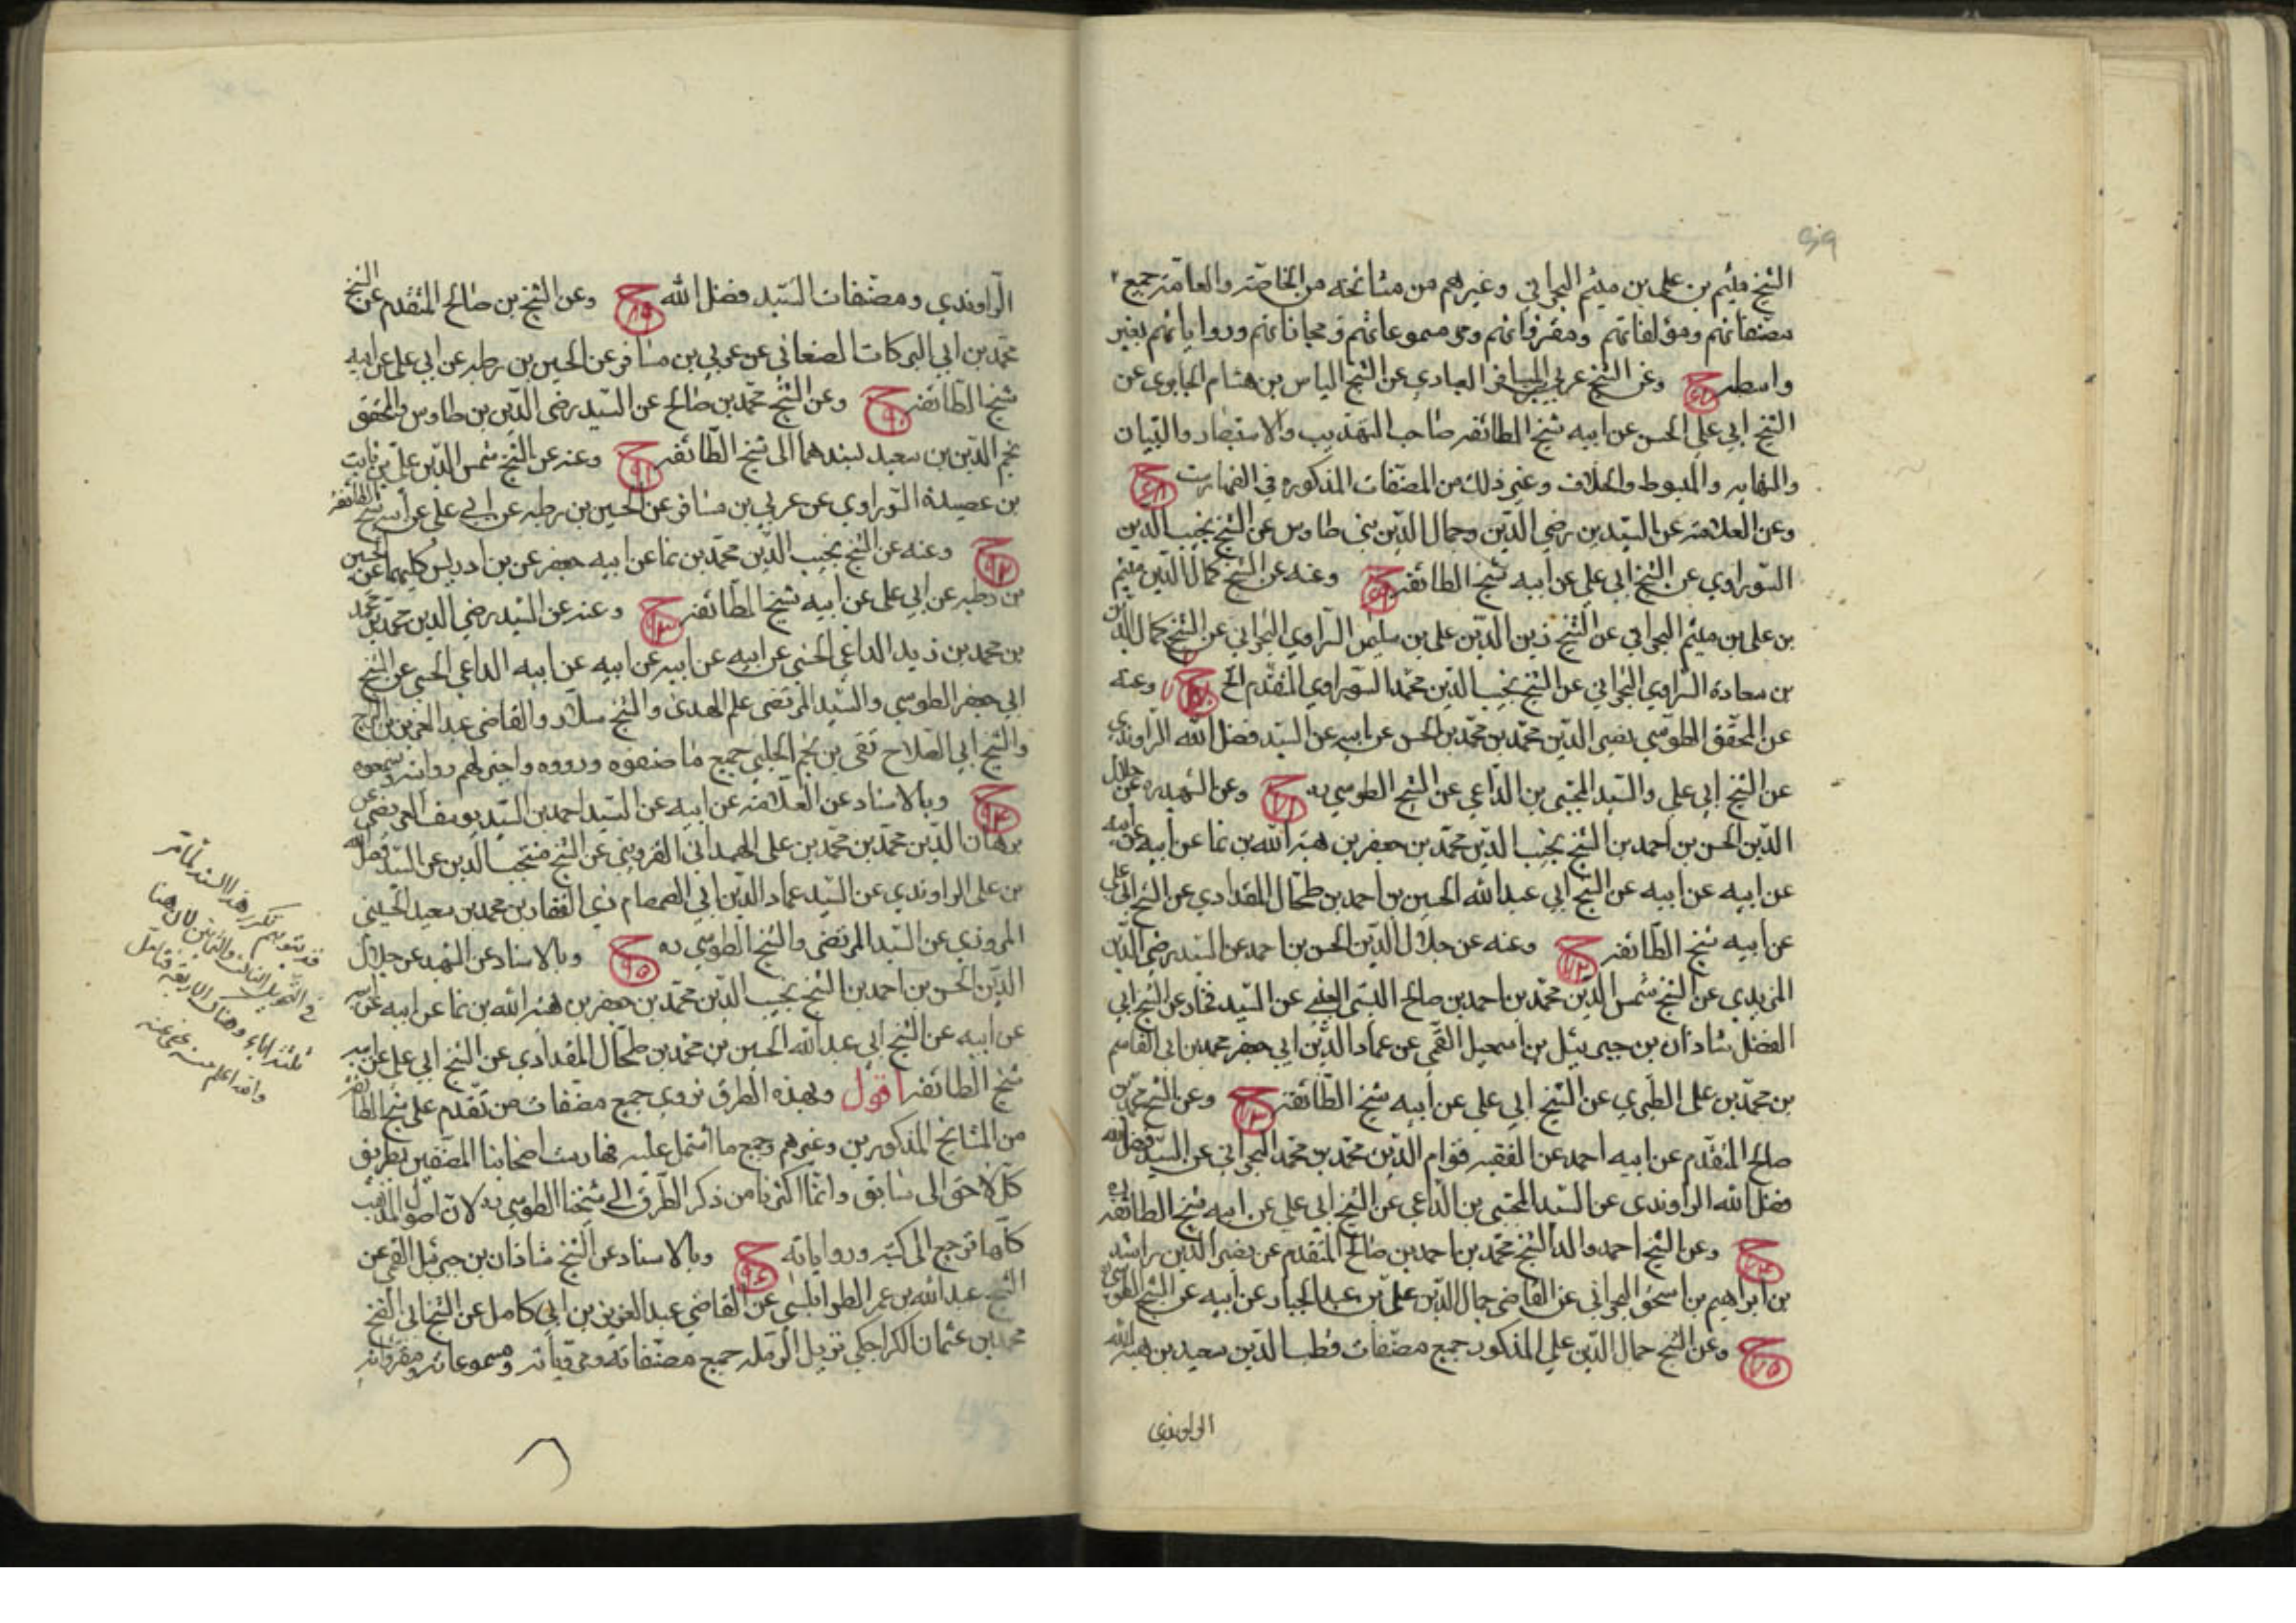 الشيخ ميثم بن علي بن ميثم البحراني وغيرهم من مشائخه من الخاصة والعامة جميع
مصنفاتهم ومؤلفاتهم ومقرؤاتهم ومسموعاتهم ومجازاتهم ورواياتهم بغير
واسطه ح وعن الشيخ عربي بن المسافر العبادي عن الشيخ الياس بن هشام الحايري عن
الشيخ ابي علي الحسن عن ابيه شيخ الطائفه صاحب التهذيب والاستبصار والتبيان
والنهايه والمبسوط والخلاف وغير ذلك من المصنفات المذكوره في الفهارست ح
وعن العلامة عن السيدين رضي الدين وجمال الدين بني طاوس عن الشيخ نجيب الدين
السوراوي عن الشيخ ابي علي عن ابيه شيخ الطائفه ح وعنه عن الشيخ كمال الدين ميثم
بن علي بن ميثم البحراني عن الشيخ زين الدين علي بن سليمن الستراوي البحراني عن الشيخ كمال الدين
بن سعادة الستراوي البحراني عن الشيخ نجيب الدين محمد السوراوي المتقدم الخ ح وعنه
عن المحقق الطوسي نصير الدين محمد بن محمد بن الحسن عن ابيه عن السيد فضل الله الراوندي
عن الشيخ ابي علي والسيد المجتبى بن الداعي عن الشيخ الطوسي ره ح وعن الشهيد ره عن جلال
الدين الحسن بن احمد بن الشيخ نجيب الدين محمد بن جعفر بن هبة الله بن نما عن ابيه عن ابيه
عن ابيه عن ابيه عن الشيخ ابي عبد الله الحسين بن احمد بن طحال المقدادي عن الشيخ ابي علي
عن ابيه شيخ الطائفه ح وعنه عن جلال الدين الحسن بن احمد عن السيد رضي الدين
المزيدي عن الشيخ شمس الدين محمد بن احمد بن صالح السيبي القسيني عن السيد فخار عن الشيخ ابي
الفضل شاذان بن جبرئيل بن اسمعيل القمي عن عماد الدين ابي جعفر محمد بن ابي القاسم
بن محمد بن علي الطبري عن الشيخ ابي علي عن ابيه شيخ الطائفه ح وعن الشيخ محمد بن
صالح المتقدم عن ابيه احمد عن الفقيه قوام الدين محمد بن محمد البحراني عن السيد فضل الله
فضل الله الراوندي عن السيد المجتبى بن الداعي عن الشيخ ابي علي عن ابيه شيخ الطائفه ره
ح وعن الشيخ احمد والد الشيخ محمد بن احمد بن صالح المتقدم عن نصير الدين راشد
بن ابراهيم بن اسحق البحراني عن القاضي جمال الدين علي بن عبد الجبار عن ابيه عن الشيخ الطوسي
ح وعن الشيخ جمال الدين علي المذكور جميع مصنفات قطب الدين سعيد بن هبة الله
الراوندي
الراوندي ومصنفات السيد فضل الله ح وعن الشيخ بن صالح المتقدم عن الشيخ
محمد بن ابي البركات الصنعاني عن عربي بن مسافر عن الحسين بن رطبه عن ابي علي عن ابيه
شيخ الطائفه ح وعن الشيخ محمد بن صالح عن السيد رضي الدين بن طاوس والمحقق
نجم الدين بن سعيد بسندهما الى شيخ الطائفه ح وعنه عن الشيخ شمس الدين علي بن ثابت
بن عصيدة السوراوي عن عربي بن مسافر عن الحسين بن رطبه عن ابي علي عن ابيه شيخ الطائفه
ح وعنه عن الشيخ نجيب الدين محمد بن نما عن ابيه جعفر عن بن ادريس كليهما عن الحسين
بن رطبه عن ابي علي عن ابيه شيخ الطائفه ح وعنه عن السيد رضي الدين محمد بن محمد
بن محمد بن زيد الداعي الحسني عن ابيه عن ابيه عن ابيه عن ابيه الداعي الحسني عن الشيخ
ابي جعفر الطوسي والسيد المرتضى علم الهدى والشيخ سلار والقاضي عبد العزيز بن البراج
والشيخ ابي الصلاح تقي بن نجم الحلبي جميع ما صنفوه ورووه واجيز لهم روايته وسمعوه
ح وبالاسناد عن العلامه عن ابيه عن السيد احمد بن السيد يوسف العريضي عن
برهان الدين محمد بن محمد بن علي الهمداني القزويني عن الشيخ منتجب الدين عن السيد فضل الله
بن علي الراوندي عن السيد عماد الدين ابي الصمصام ذي الفقار بن محمد بن معبد الحسيني
المروزي عن السيد المرتضى والشيخ الطوسي ره ح وبالاسناد عن الشهيد عن جلال
الدين الحسن بن احمد بن الشيخ نجيب الدين محمد بن جعفر بن هبة الله بن نما عن ابيه عن ابيه
عن ابيه عن الشيخ ابي عبد الله الحسين بن محمد بن طحال المقدادي عن الشيخ ابي علي عن ابيه
شيخ الطائفه اقول وبهذه الطرق نروي جميع مصنفات من تقدم على شيخ الطائفه
من المشائخ المذكورين وغيرهم وجميع ما اشتمل عليه فهارست اصحابنا المصنفين بطريق
كل لاحق الى سابق وانما اكثرنا من ذكر الطرق الى شيخنا الطوسي ره لان اصول المذهب
كلها ترجع الى كتبه ورواياته ح وبالاسناد عن الشيخ شاذان بن جبرئيل القمي عن
الشيخ عبد الله بن عمر الطرابلسي عن القاضي عبد العزيز بن ابي كامل عن الشيخ ابي الفتح
محمد بن عثمان الكراجكي نزيل الرمله جميع مصنفاته ومروياته ومسموعاته ومقرواته
قد يتوهم تكرر هذا السند لما مر
في التحويل الثالث والثمانين لان هنا
ثلثة اباء وهناك اربعة فتامل
والله اعلم منه عفي عنه